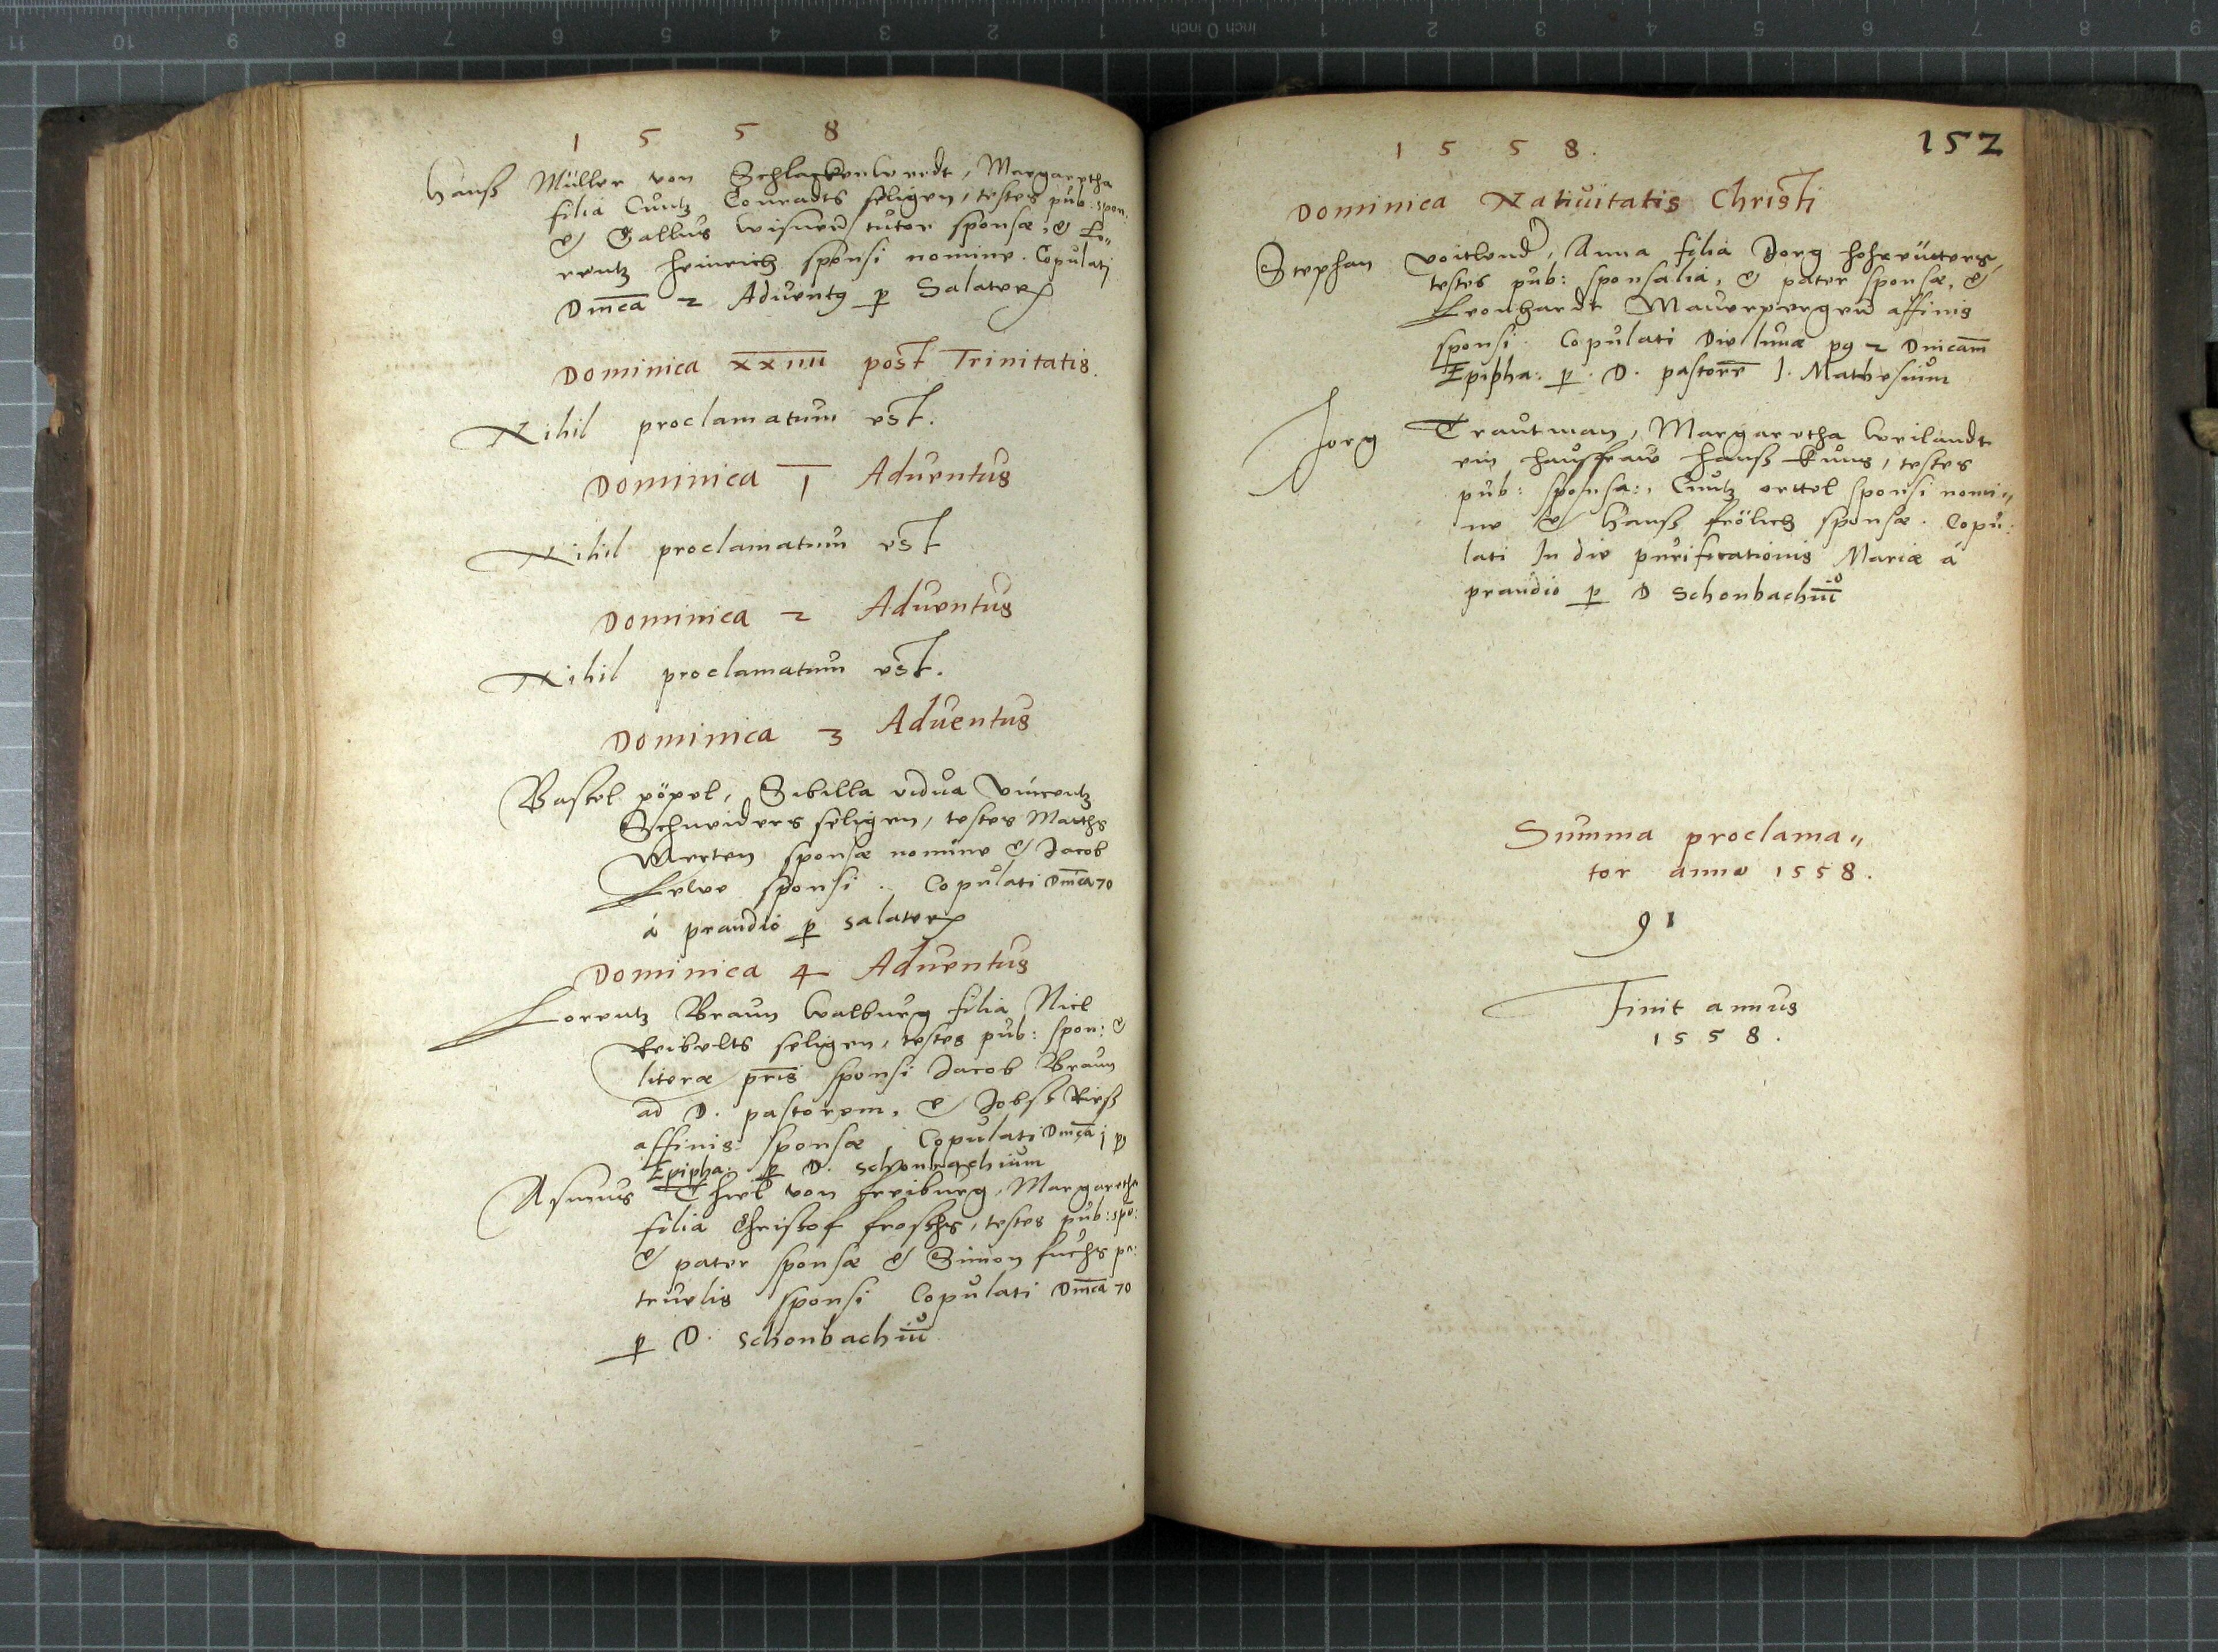 1 5 5 8
Hanß Müller von Schlackenwerdt, Margaretha
filia Cuntz Conradts seligen, testes pub: spon:
& Gallus wisner tutor sponsæ, & Lo„
rentz heinrich sponsi nomine. Copulati
Dmca 2 Adventg p Salater
Dominica xxiiii post Trinitatis.
Nihil proclamatum est.
Dominica 1 Aduentus
Nihil proclamatum est
Dominica 2 Aduentus
Nihil proclamatum est.
Dominica 3 Aduentus
Bastel pöpel, Sibilla vidua Vincentz
Schneiders seligen, testes Matths
Merten sponsæ nomine & Jacob
sponsi. Copulati Dmca 70
á prandio p salater
Dominica 4 Aduentus
Lorentz Braun Walburg filia Nicl
seligen, testes pub: spon: &
literæ pris sponsi Jacob Braun
ad D. pastorem, & Jobst
affinis sponsæ, Copulati Dmca j pg
Epipha: p D. Schonbachium
Asmus Thiel von freiburg, Margareth
filia Christof froschs, testes pub: spo:
& pater sponsæ & Simon fuchs pa:
truelis sponsi Copulati Dmca 70
p D. Schonbachiū
1 5 5 8.
152
Dominica Natiuitatis Christi
Stephan voitlend, Anna filia Jorg
testes pub: sponsalia, & pater sponsæ, &
Leonhardt affinis
sponsi. Copulati Die lunæ pg 2 Dnicam
Epipha: p. D. pastorē J. Mathesium
Jorg Trautman, Margaretha Weilandt
ein hausfraw hanß Kuns, testes
pub: sponsa:, Cuntz ertel sponsi nomi„
ne & Hanß frölich sponsæ. Copu:
lati In die purificationis Mariæ á
prandio p D Schonbachiū
Summa proclama„
tor anno 1558.
91
Finit annus
1558.